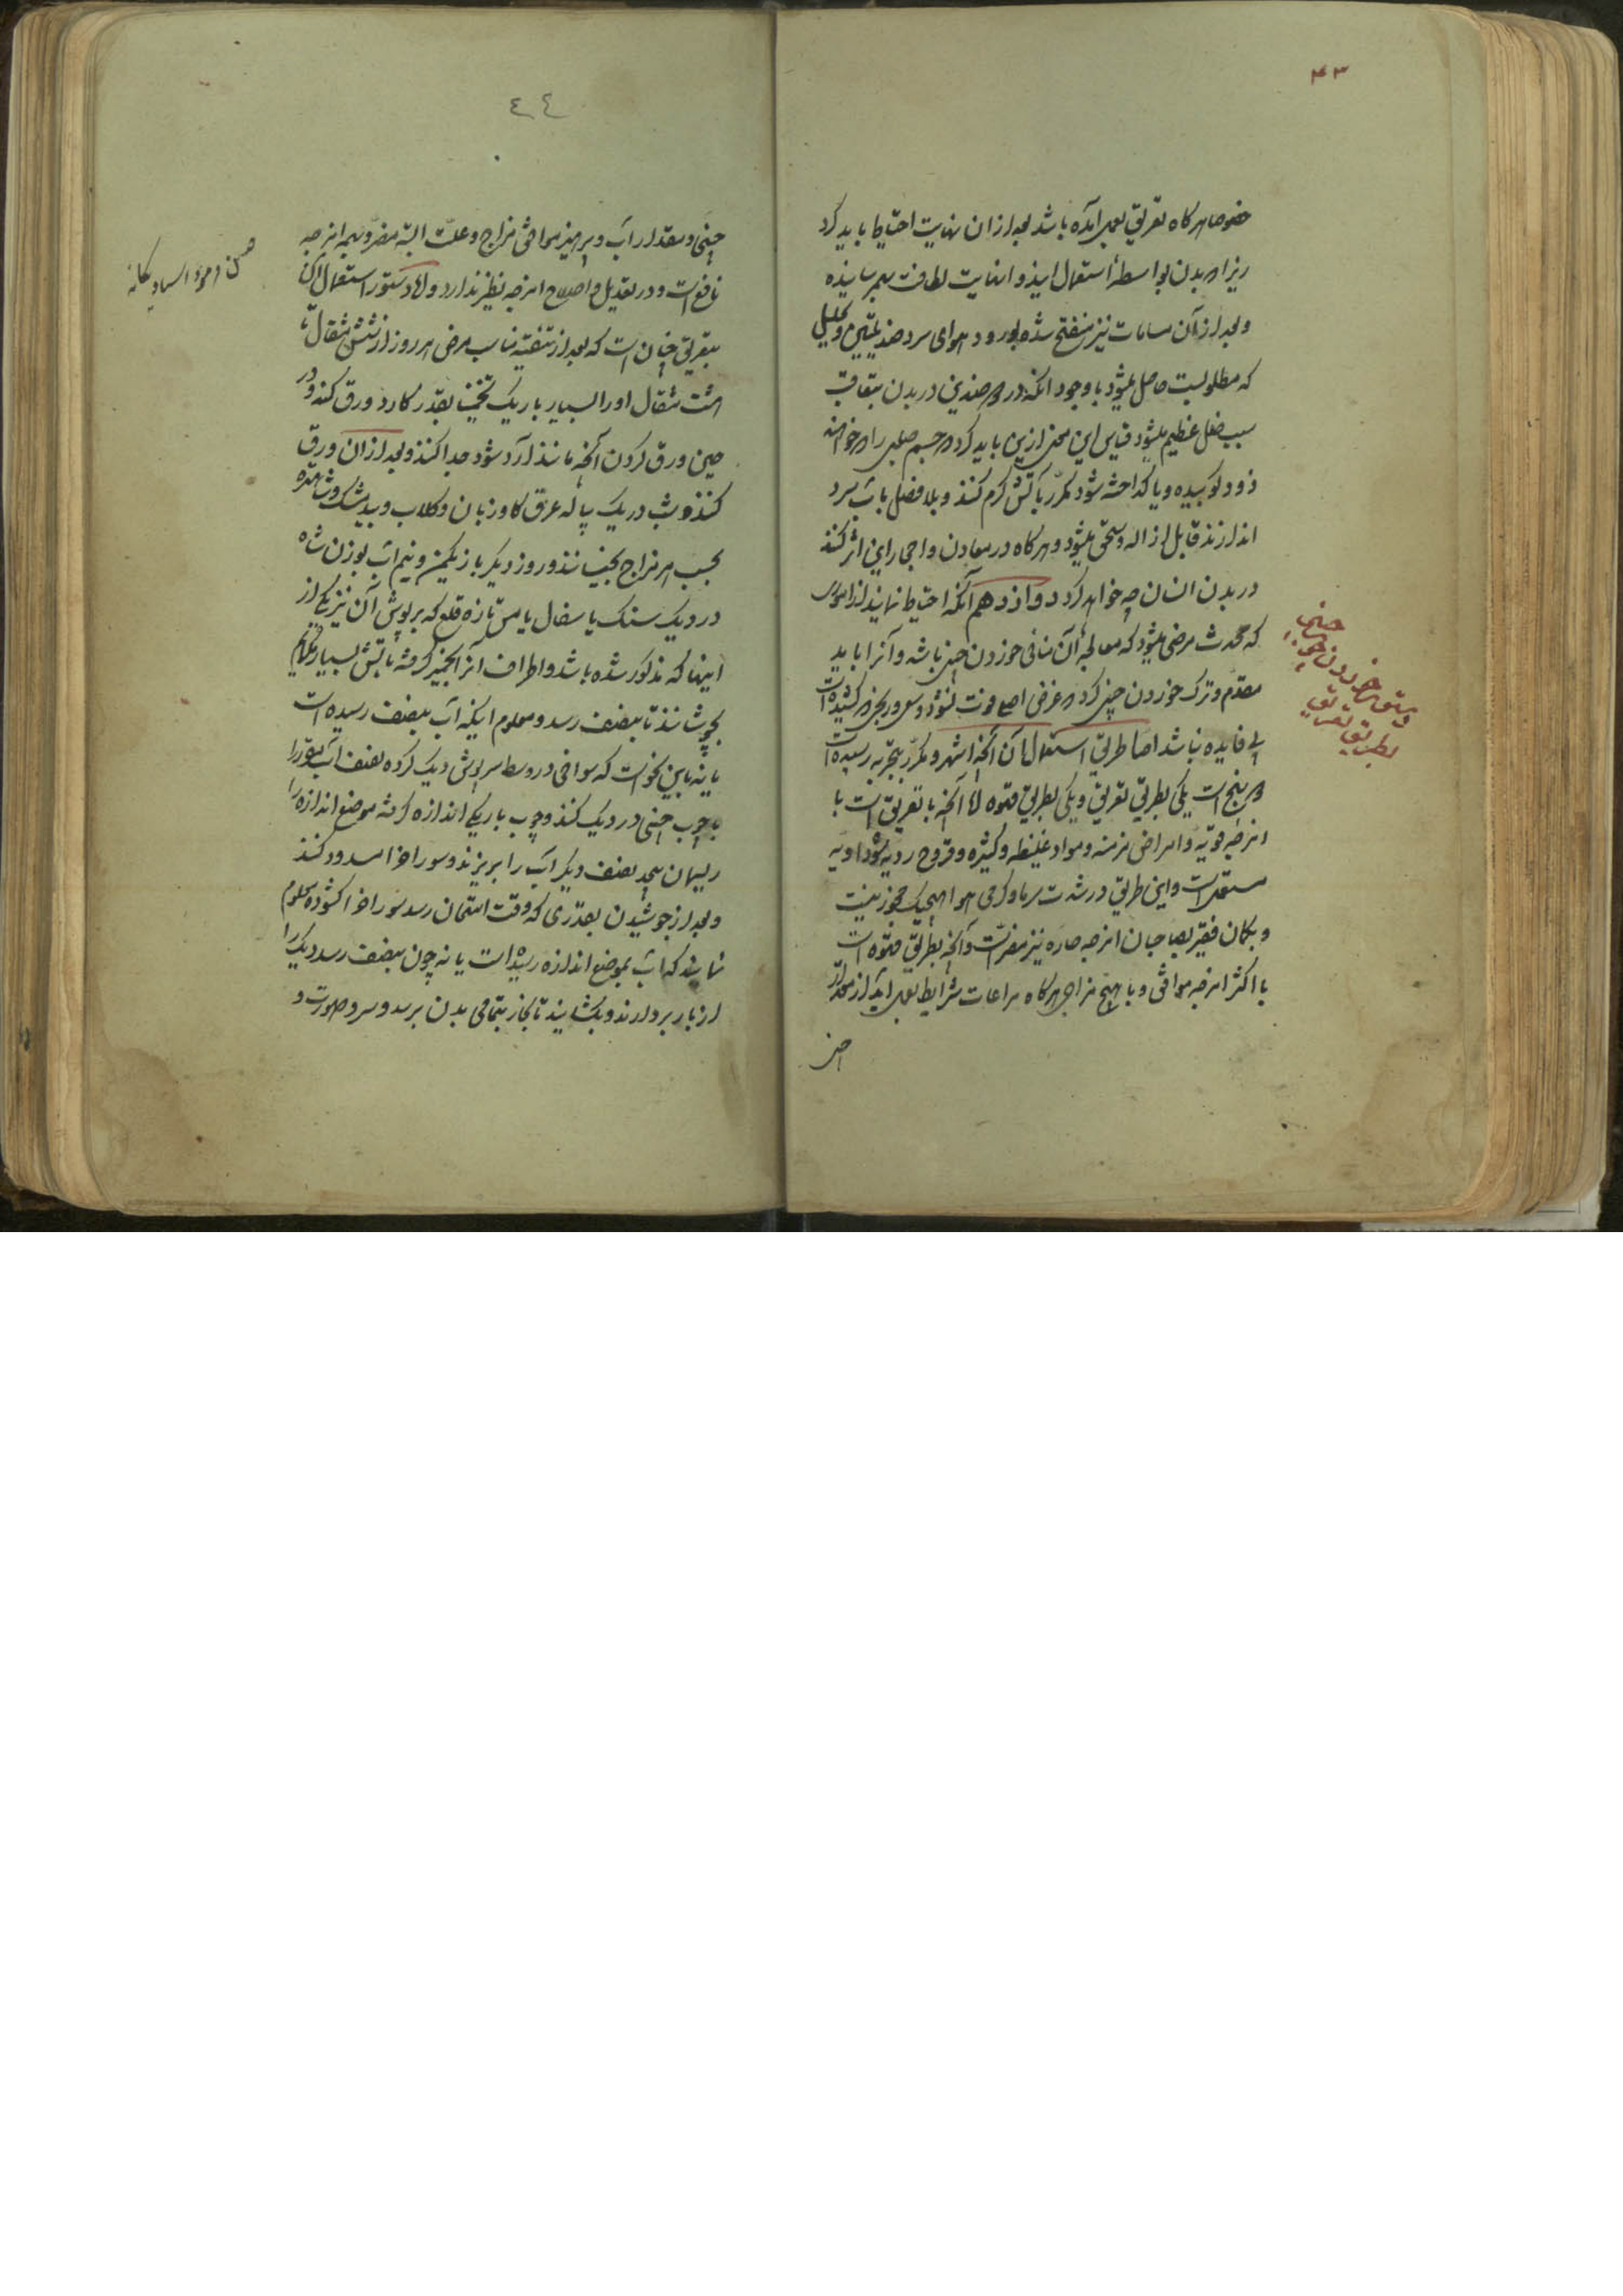 ۴۳
خصوصا هرگاه تعریق بعمل آمده باشد بعد از ان نهایت احتیاط باید کرد
زیرا که بدن بواسطهٔ استعمال این دوا نهایت لطافت بهم رسانیده
و بعد از آن مسامات نیز منفتح شده بورود هوای سرد ضد تلیین و تحلیل
که مطلوبست حاصل میشود با وجود آنکه ورود ضدین در بدن بتعاقب
سبب خلل عظیم میشود قیاس این معنی ازین باید کرد که جسم صلبی را که خواهند
زود کوبیده و یا گداخته شود مکرر بآتش گرم کنند و بلافصل بآب سرد
اندازند قابل ازاله و سحق میشود و هرگاه در معادن و احجار این اثر کند
در بدن انسان چه خواهد کرد دوازدهم آنکه احتیاط نمایند از امور
که محدث مرضی میشود که معالجهٔ آن منافی خوردن چینی باشد و آنرا باید
مقدم و ترک خوردن چینی کرد که غرض اصلی فوت نشود و
بی فایده نباشد اما طریق استعمال آن آنچه اشهر و مکرر بتجربه رسیده است
یکی بطریق تعریق و یکی بطریق قهوه اما آنچه با تعریق است با
امزجه قویه و امراض مزمنه و مواد غلیظه و کثیره و قروح ردیه
مستعمل است و این طریق در شدت سرما و گرمی هوا هیچیک مجوز نیست
و بگمان فقیر بصاحبان امزجه حاره نیز مضر است و آنچه بطریق قهوه است
با اکثر امزجه موافق و با هیچ مزاجی هرگاه مراعات شرایط بعمل آید از
دستور خوردن چوب چینی
بطریق تعریق
٤٤
چینی و مقدار آب و پرهیز موافق مزاج و علت البته مضر و بهمه امزجه
نافع است و در تعدیل و اصلاح امزجه نظیر ندارد و اما دستور استعمال آن
بتعریق چنان است که بعد از تنقیه مناسب مرض هر روز از شش مثقال تا
هشت مثقال او را بسیار باریک بقدر کارد ورق کنند و در
حین ورق کردن آنچه مانند آرد شود جدا کنند و بعد از ان ورق
کنند و شب در یک پیاله عرق گاوزبان و گلاب و بیدمشک و شاهتره
بحسب هر مزاج بخیسانند و روز دیگر با یکمن و نیم آب بوزن شاه
در دیک سنک یا سفال یا مس تازه قلع که سرپوش آن نیز یکی از
اینها که مذکور شده باشد و اطراف آنرا بخمیر گرفته بآتش بسیار ملایم
بجوشانند تا بنصف رسد و معلوم اینکه آب بنصف رسیده است
یا نه باین نحو است که سوراخی در وسط سرپوش دیک کرده نصف آب مقرر را
با چوب چینی در دیک کنند و چوب باریکی اندازه گرفته موضع اندازه را
ریسمان نصف دیگر آب را بریزند و سوراخ را مسدود کنند
و بعد از جوشیدن بقدری که وقت امتحان رسد سوراخ را گشوده معلوم
نمایند که آب بموضع اندازه رسیده است یا نه چون بنصف رسد دیک را
از بار بردارند و بگشایند تا بخار بتمامی بدن برسد و سر و صورت و